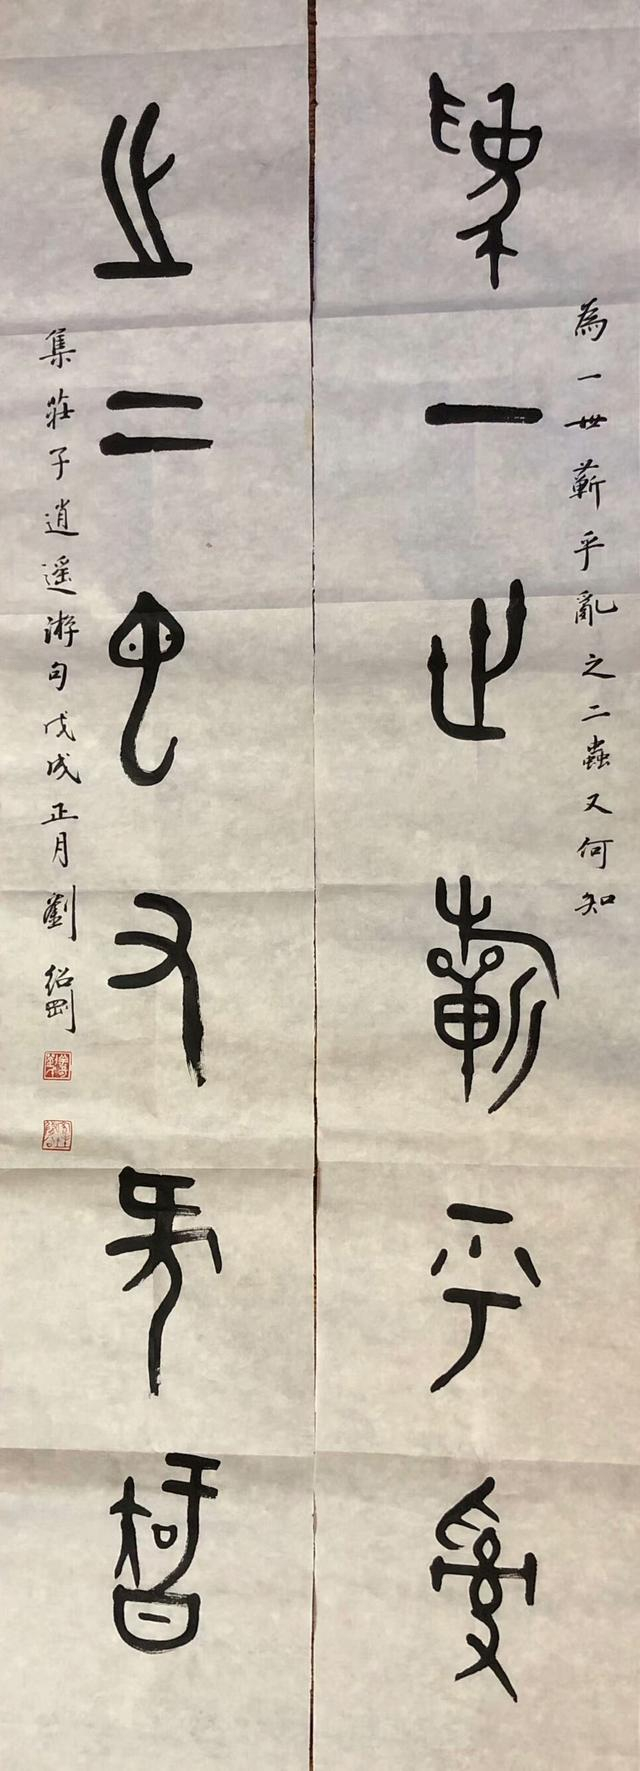 為一世蘄乎亂
為一世蘄乎亂之二蟲又何知
之二蟲又何知
集莊子逍遥游句戊戌正月劉紹剛